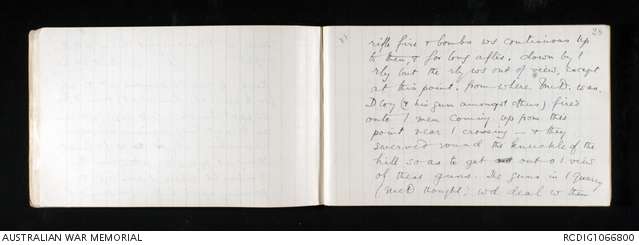 28
rifle fire & bombs ws continuous up
to then, & for long after. down by /
rly but the rly ws out of view, except
at this point. from where McD. was.
D Coy (& his gun amongst others) fired
onto / men coming up from this
point near / crossing — & they
swerved round the knuckle of the
hill so as to get out o / view
of these guns. The guns in / quarry
(McD thought) wd deal w them
AUSTRALIAN WAR MEMORIAL
RCDIG1066800